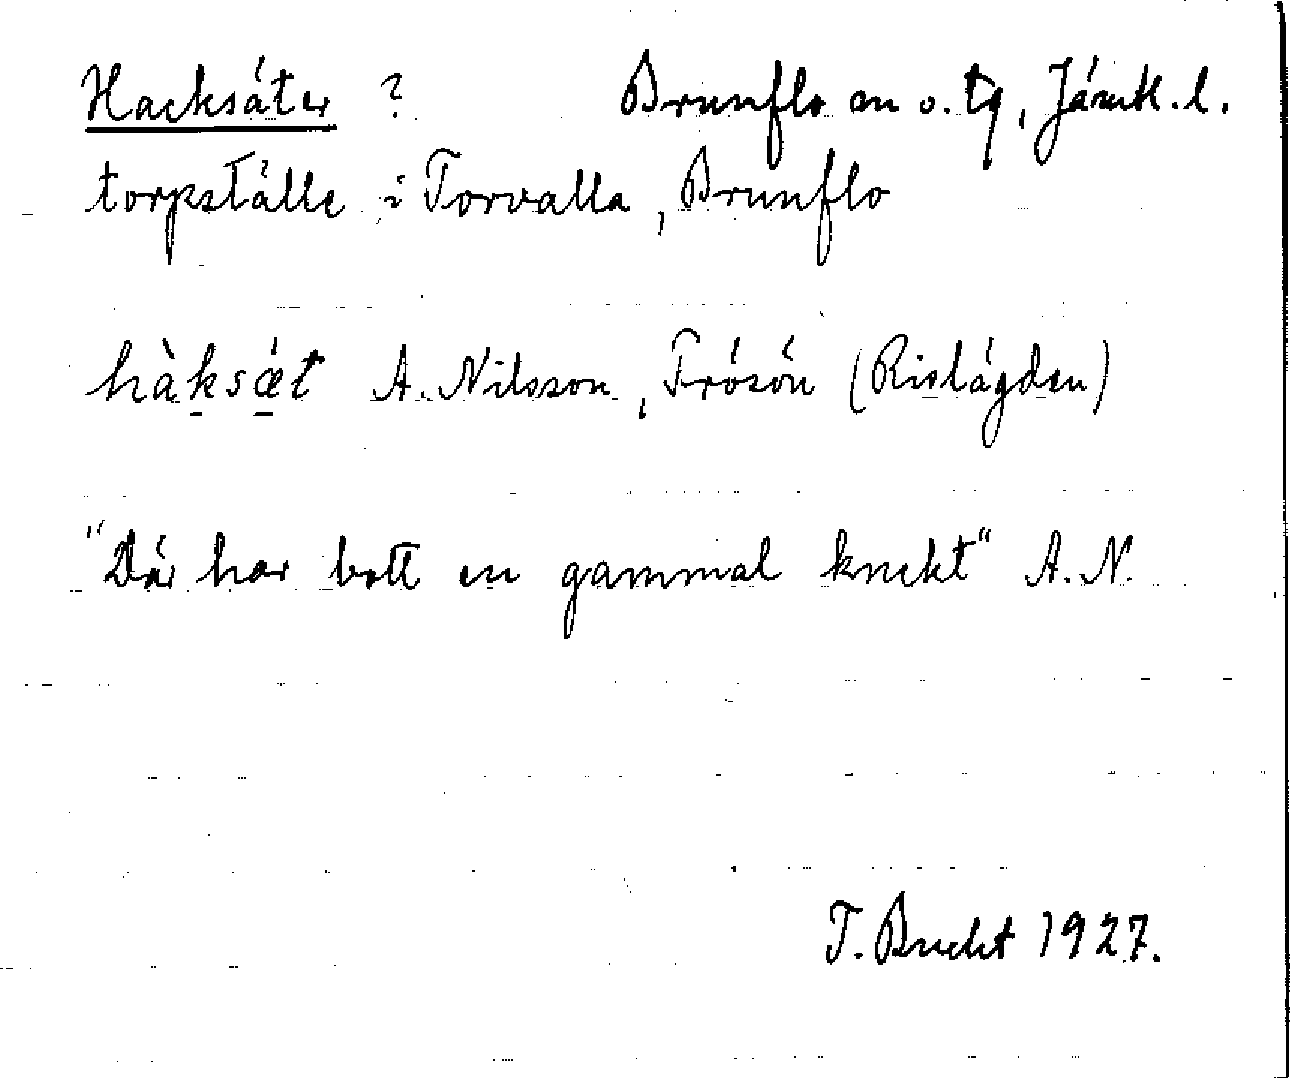 Hacksáter ? Brunflo sn o. tg, Jämtl. l.
torpställe i Torvalla, Brunflo
hàksǽt A. Nilsson, Frösön (Rislägden)
"Där har bott en gammal knekt" A.N.
T. Bucht 1927.